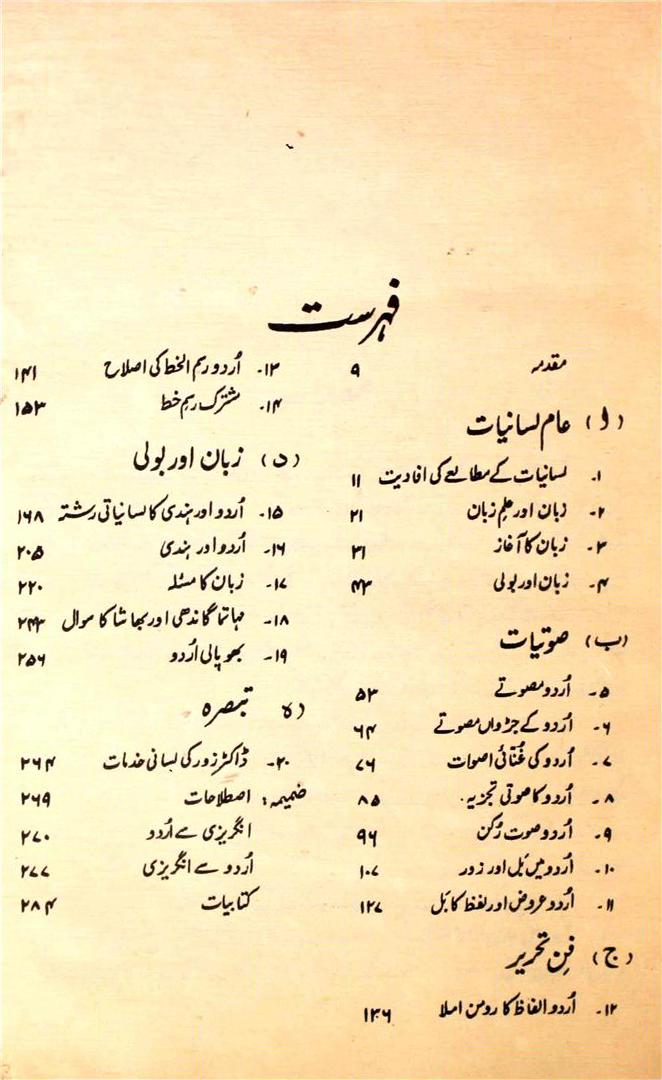 فہرست
مقدمہ ۹
(ا) عام لسانیات
۱۔ لسانیات کے مطالعے کی افادیت ۱۱
۲۔ زبان اور علمِ زبان ۲۱
۳۔ زبان کا آغاز ۳۱
۴۔ زبان اور بولی ۴۳
(ب) صوتیات
۵۔ اُردو مصوتے ۵۳
۶۔ اُردو کے جڑواں مصوتے ۶۴
۷۔ اُردو کی غُنّائی اصوات ۷۶
۸۔ اُردو کا صوتی تجزیہ۔ ۸۵
۹۔ اُردو صوت رُکن ۹۶
۱۰۔ اُردو میں بَل اور زور ۱۰۷
۱۱۔ اُردو عروض اور لفظ کا بَل ۱۲۷
(ج) فنِ تحریر
۱۲۔ اُردو الفاظ کا رومن املا ۱۳۶
۱۳۔ اُردو رسم الخط کی اصلاح ۱۴۱
۱۴۔ مشترک رسمِ خط ۱۵۳
(د) زبان اور بولی
۱۵۔ اُردو اور ہندی کا لسانیاتی رشتہ ۱۶۸
۱۶۔ اُردو اور ہندی ۲۰۵
۱۷۔ زبان کا مسئلہ ۲۲۰
۱۸۔ مہاتما گاندھی اور بھاشا کا سوال ۲۴۳
۱۹۔ بھوپالی اُردو ۲۵۶
(ہ) تبصرہ
۲۰۔ ڈاکٹر زور کی لسانی خدمات ۲۶۴
ضمیمہ: اصطلاحات ۲۶۹
انگریزی سے اُردو ۲۷۰
اُردو سے انگریزی ۲۷۷
کتابیات ۲۸۴